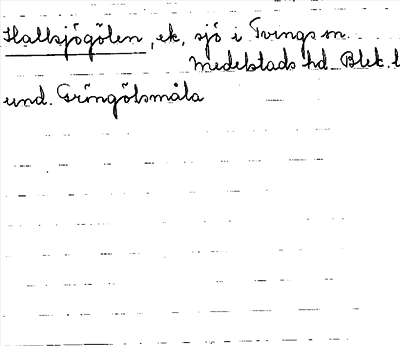 Hallsjögölen, ek, sjö i Tvings sn
Medelstads hd Blek. l
und. Gröngölsmåla